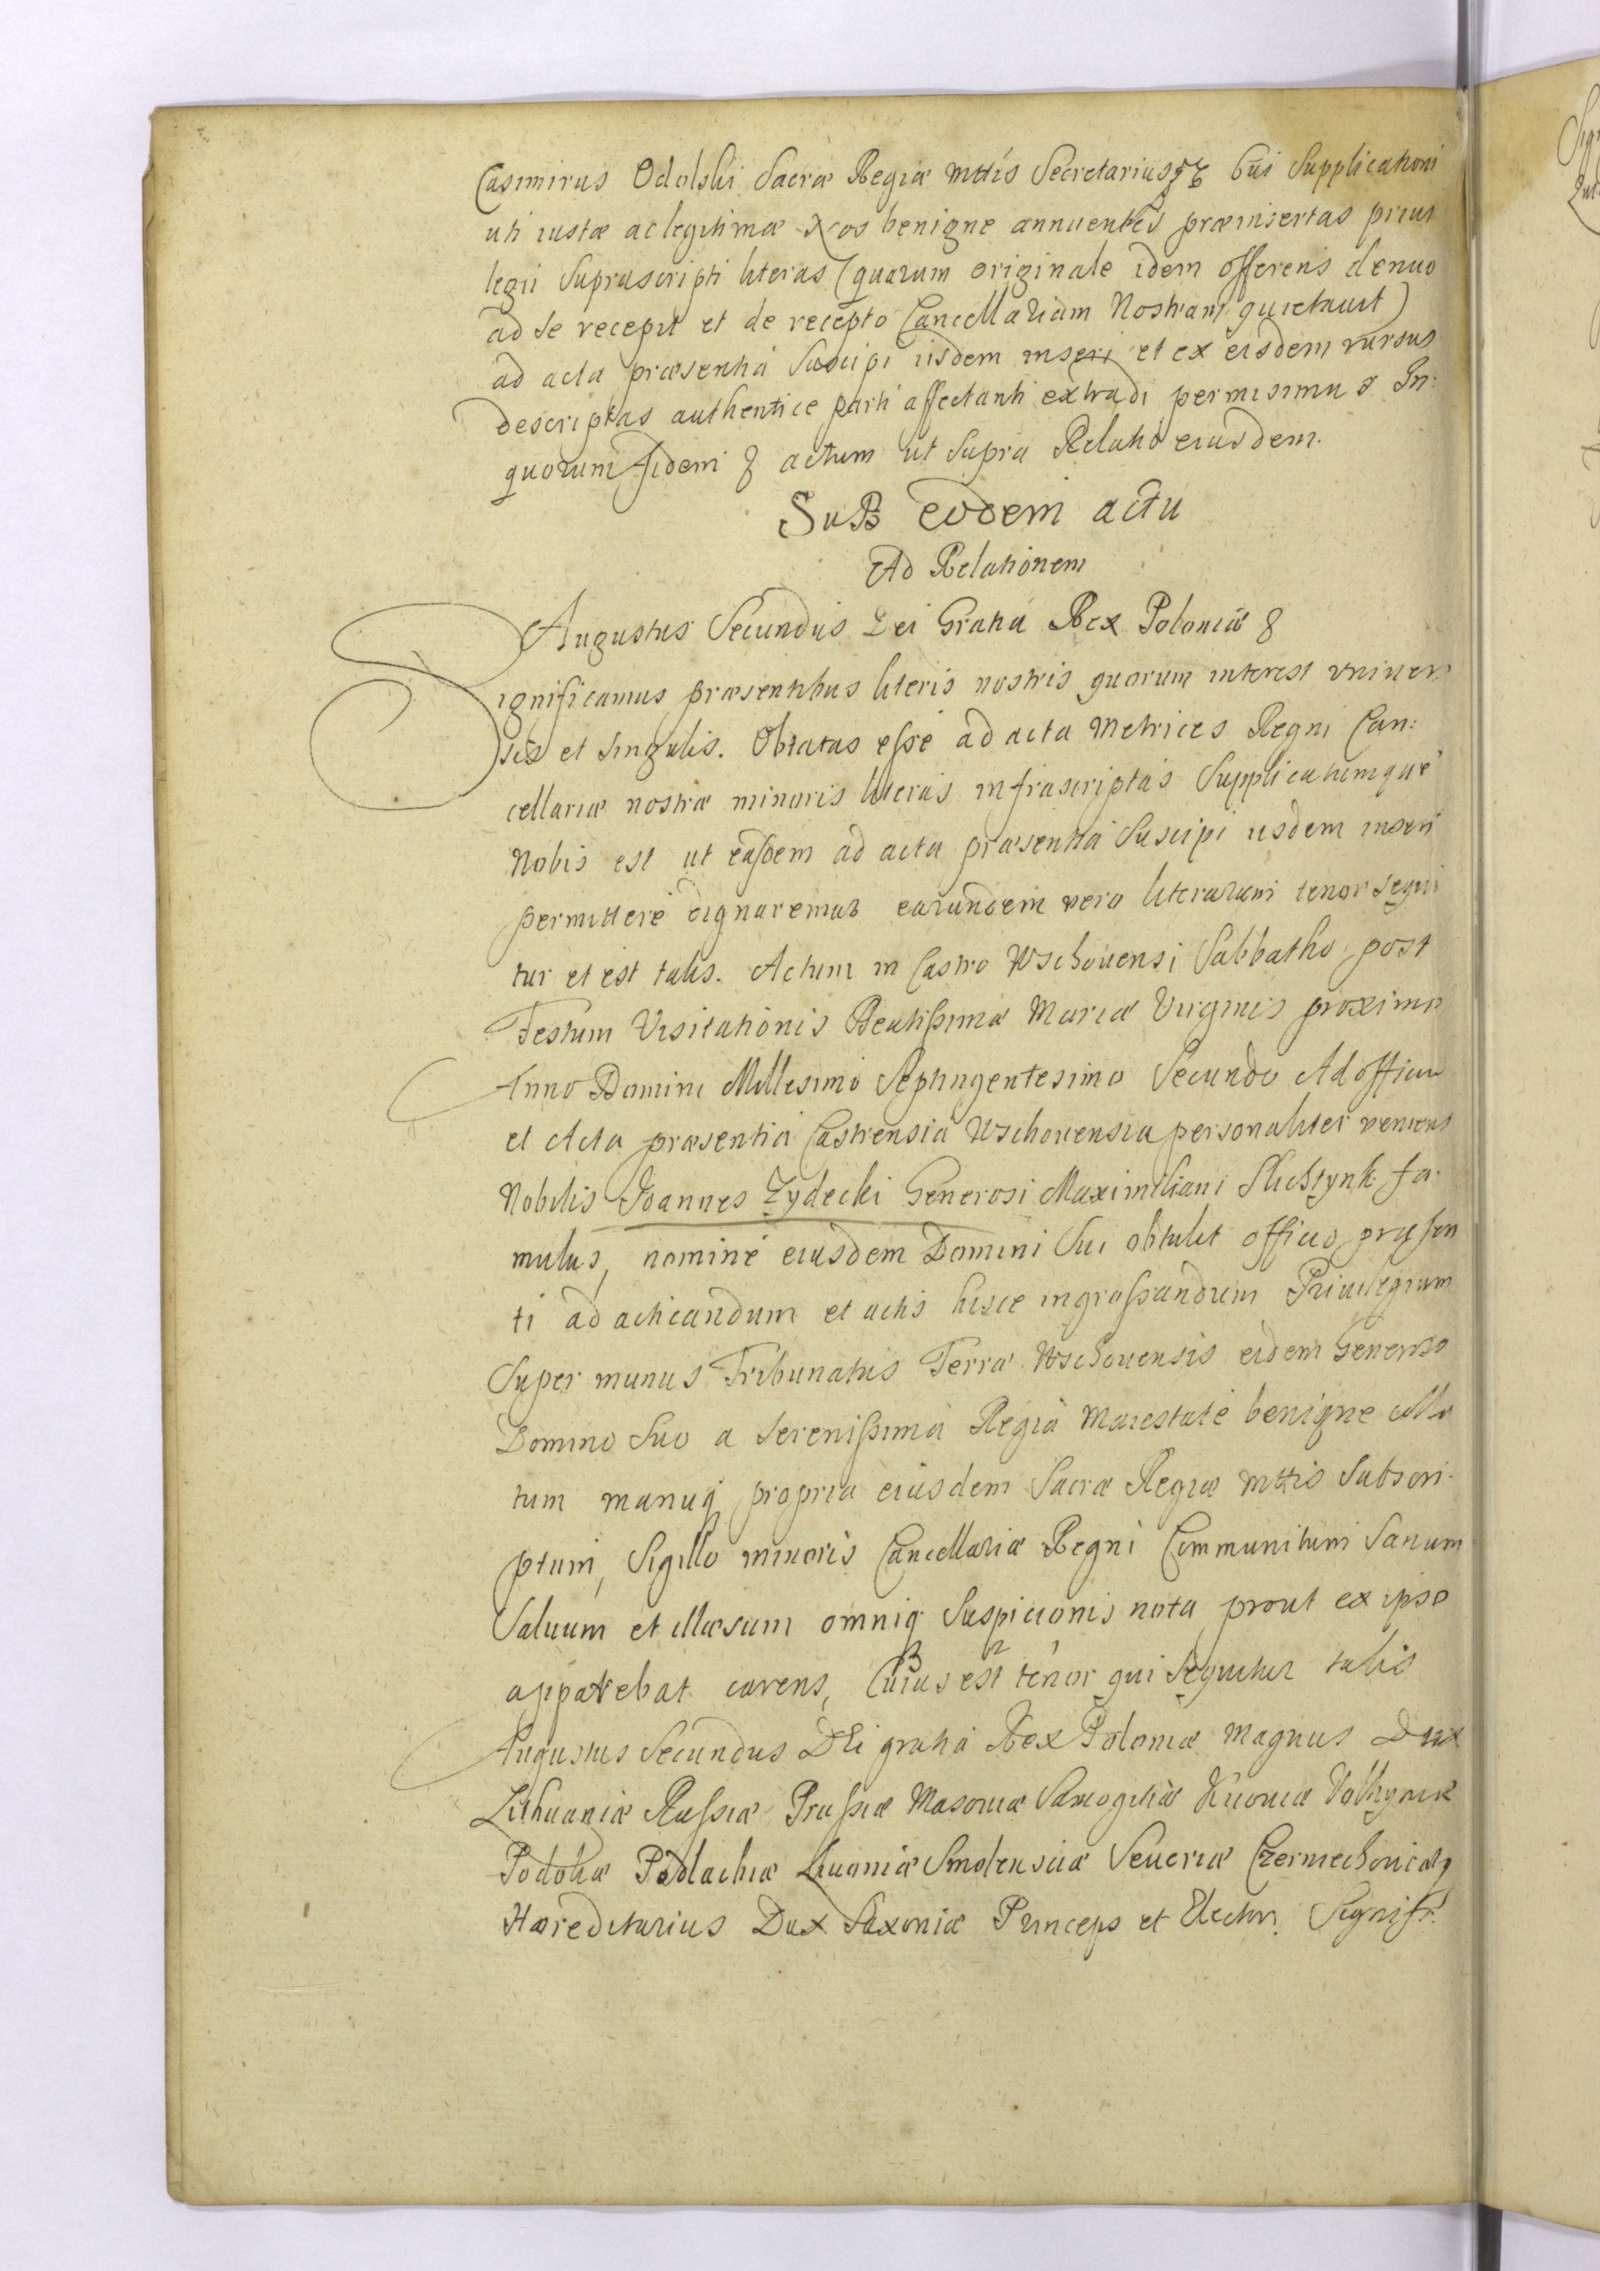 Casimirus Odolski Sacræ Regiæ Mttis Secretarius Cui Supplicationi
uti iustæ ac legitimæ Nos benigne annuentes præinsertas priui
legii Suprascripti literas (quarum originale idem offerens denuo
ad se recepit et de recepto Cancellariam Nostram quietauit)
ad acta præsentia Suscipi iisdem inseri et ex eisdem rursus
descriptas authentice parti affectanti extradi permisimus In:
quorum fidem & actum ut Supra Relatio eiusdem.
SuB eodem actu
Ad Relationem
Augustus Secundus Dei Gratia Rex Poloniæ &
Significamus præsentibus literis nostris quorum interest vniuer
sis et singulis. Oblatas esse ad acta Metrices Regni Can:
cellariæ nostræ minoris literas infrascriptas Supplicatumque
Nobis est ut easdem ad acta præsentia Suscipi iisdem inseri
permittere dignaremur earundem vero literarum tenor sequi
tur et est talis. Actum in Castro Wschouensi Sabbatho post
Festum Visitationis Beatissimæ Mariæ Virginis proximo
Anno Domini Millesimo Septingentesimo Secundo Ad officiu
et Acta præsentia Castrensia Wschouensia personaliter veniens
Nobilis Joannes Zydecki Generosi Maximiliani Slichtynk: fa:
mulus, nomine eiusdem Domini Sui obtulit officio præsen
ti ad acticandum et actis hisce ingrossandum Priuilegium
Super munus Tribunatus Terræ Wschouensis eidem Generoso
Domino Suo a Serenissima Regia Maiestate benigne colla
tum manuq propria eiusdem Sacræ Regiæ Mttis Subscri:
ptum, Sigillo minoris Cancellariæ Regni Communitum Sanum
Saluum et illæsum omniq Suspicionis nota, prout ex ipso
apparebat carens, Cuius 3 est 2 tenor 1 qui Sequitur talis
Augustus Secundus DEi gratia Rex Poloniæ Magnus Dux
Lithuaniæ Russiæ Prussiæ Masouiæ Samogitiæ Kiiouiæ Volhyniæ
Podoliæ Podlachiæ Liuoniæ Smolensciæ Seueriæ Czerniechouiæq
Hæreditarius Dux Saxoniæ Princeps et Elector. Signifi: